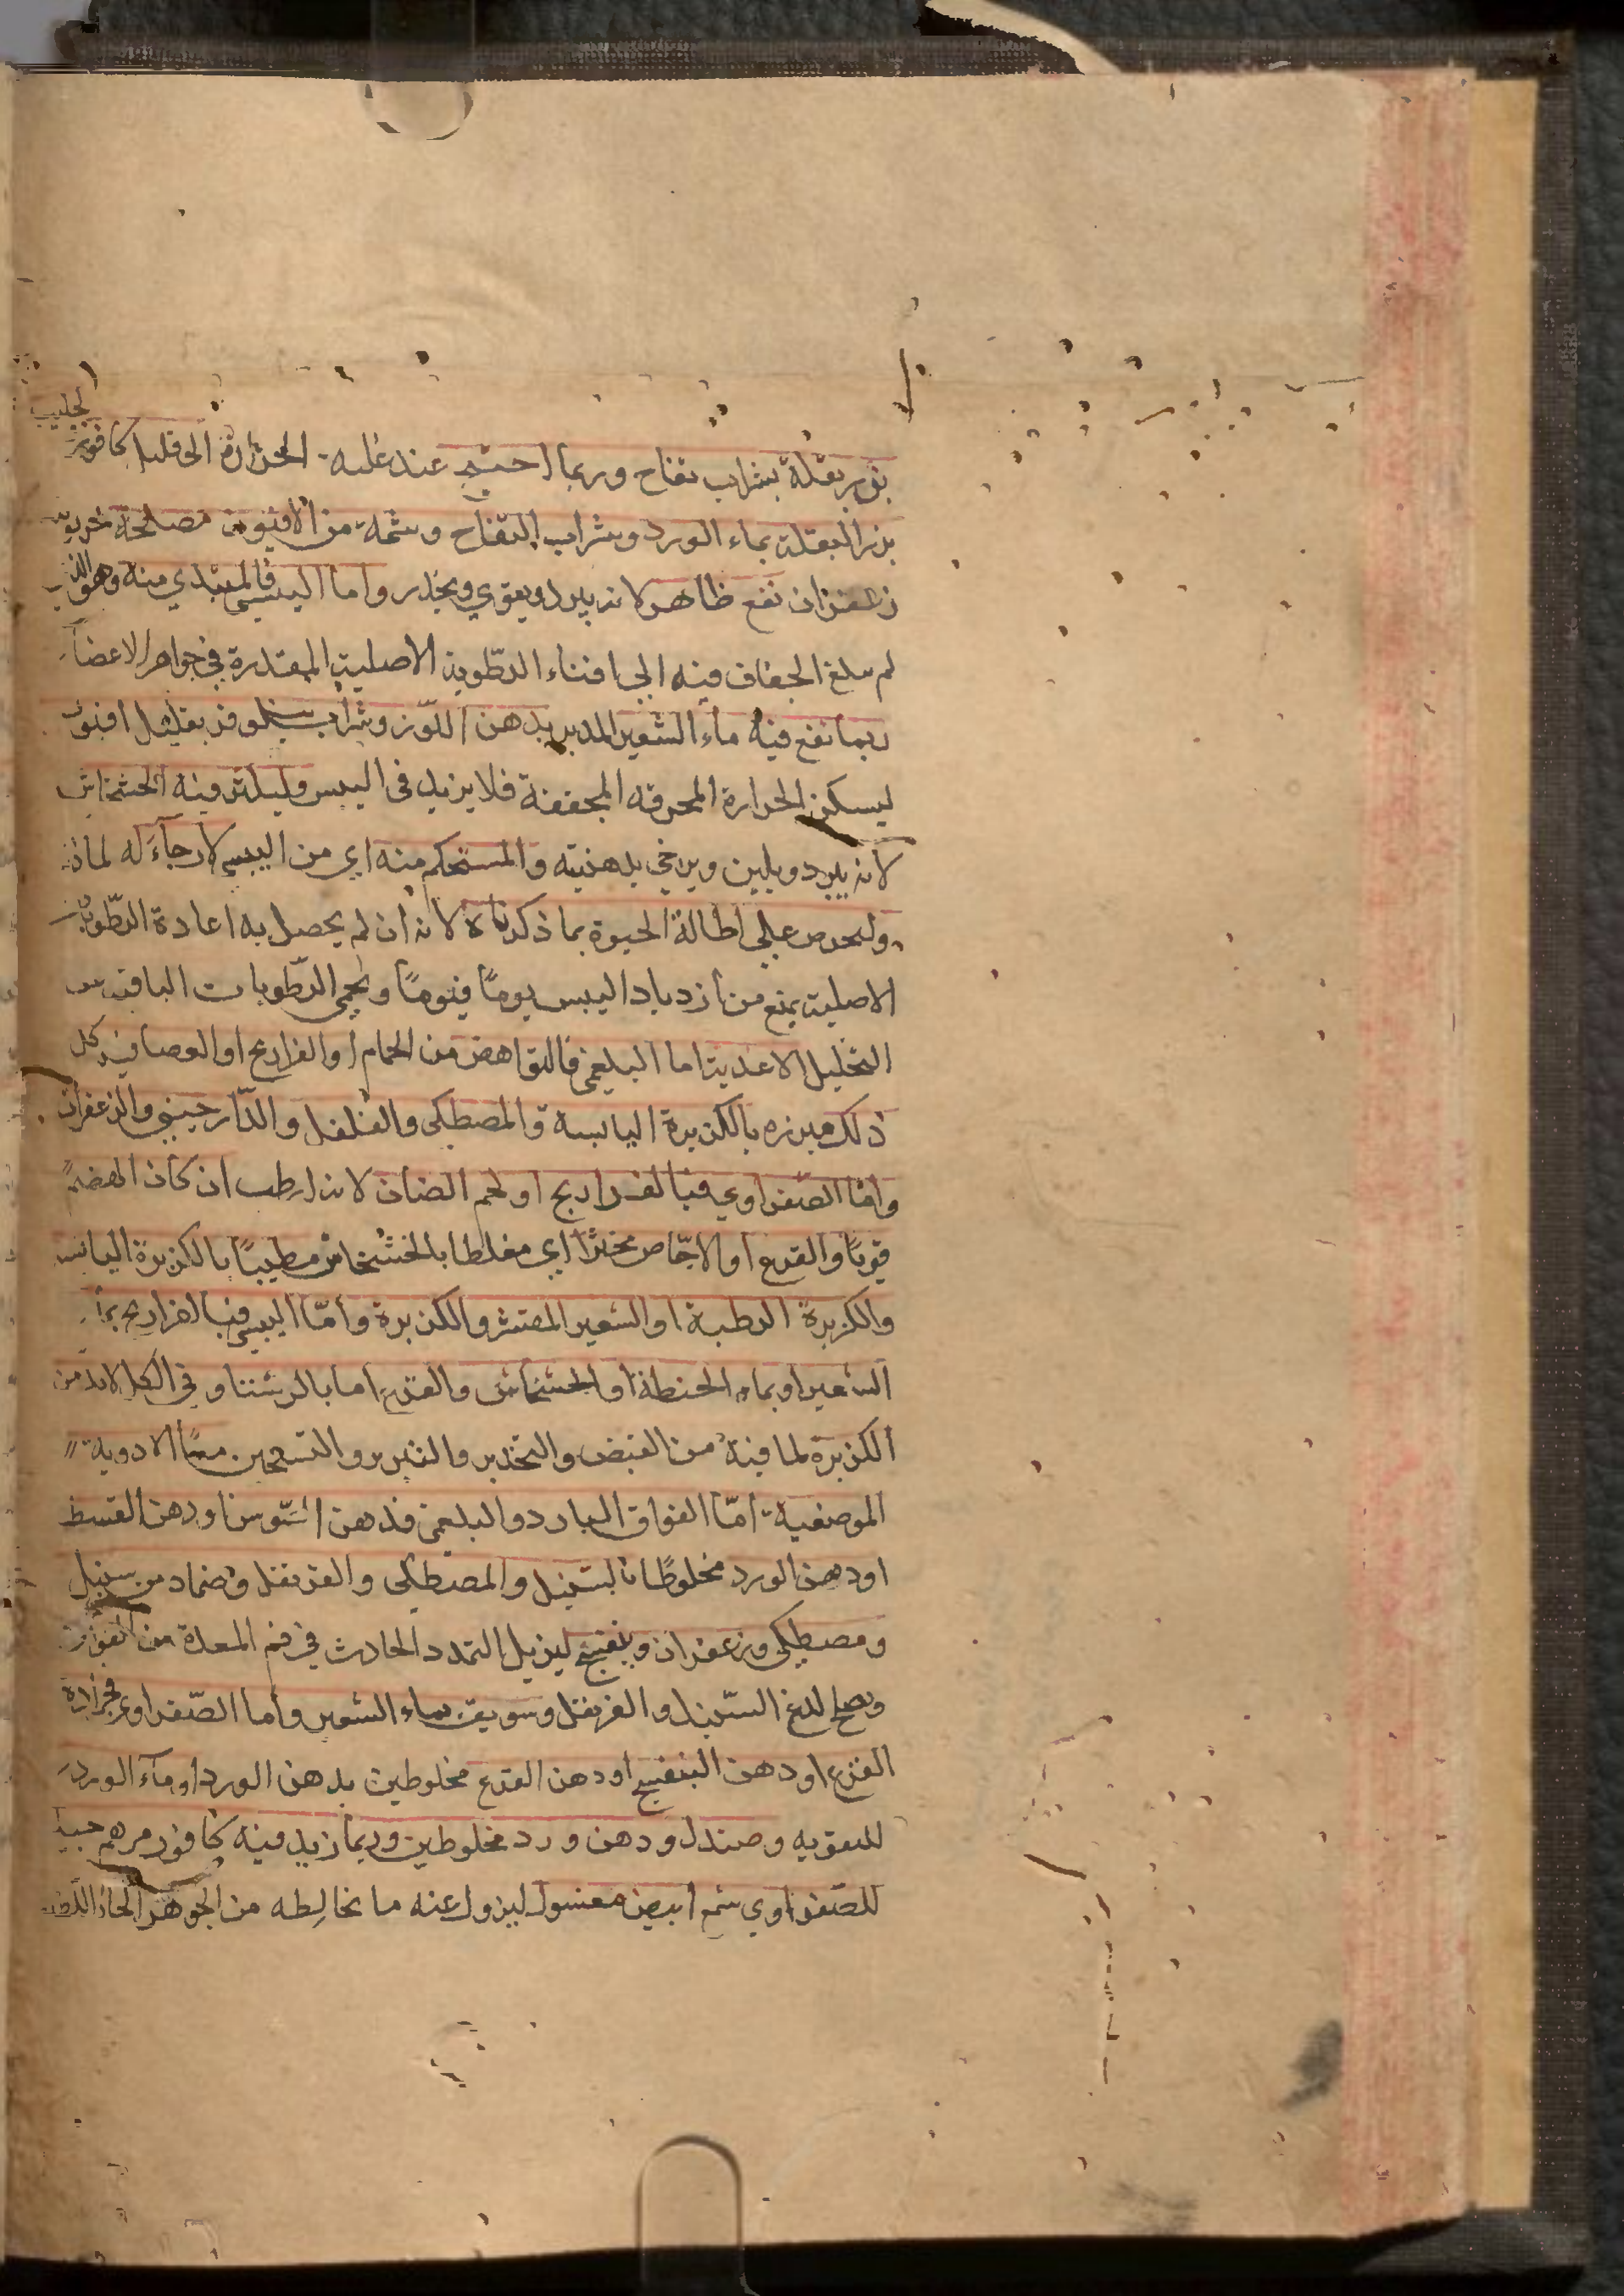 لجليب
بزر بقلة بشراب تفاح وربما احتيج عند غلبة الحرارة الى قليل كافور
بزر البقلة بماء الورد وشراب التفاح وشمة من الافيون مصلحة
زعفران نفع ظاهر لانه يبرد ويقوي ويخدر واما اليبسي فالمبتدي منه وهو الذي
لم يبلغ الجفاف فيه الى افناء الرطوبة الاصلية المقتدرة في جواهر الاعضاء
ربما نفع فيه ماء الشعير المدبر بدهن اللوز وشراب نيلوفر بقليل افيون
ليسكن الحرارة المحرقة المجففة فلا يزيد في اليبس وليلقى فيه الخشخاش
لانه يبرد ويلين ويرخي بدهنيته والمستحكم منه اي من اليبسي لا رجاء له
وليحرص على اطالة الحيوة بما ذكرناه لانه ان لم يحصل به اعادة الرطوبة
الاصلية يمنع من ازدياد اليبس يومًا فيومًا ويحمي الرطوبات الباقية
التحليل الاغذية اما البلغمي فالنواهض من الحمام او الفراريج او العصافير كل
ذلك مبزره بالكزبرة اليابسة والمصطكى والفلفل والدّارصيني والزعفران
وامّا الصّفراوي فبالفراريج او لحم الضان لانه ارطب ان كان الهضم
قويًا والقرع او الاجّاص مخثرًا اي مغلظا بالخشخاش مطيبًا بالكزبرة اليابسة
والكزبرة الرطبة او الشعير المقشر والكزبرة وأمّا اليبسي فبالفراريج بماء
الشعير او بماء الحنطة او الخشخاش والقرع اما بالرشتا وفي الكل لابد من
الكزبرة لما فيه من القبض والتخدير والتبريد والتسخين معًا الادوية
الموضعية أمّا الفواق البارد والبلغمي فدهن السّوسن او دهن القسط
او دهن الورد مخلوطًا بالسّنبل والمصطكى والقرنفل وضماد من سنبل
ومصطكى وزعفران وبنفسج ليزيل التمدد الحادث في فم المعدة من الفواق
ويصلح لدغ السّنبل والقرنفل وسويق بماء الشعير وأما الصّفراوي فجرادة
القرع او دهن البنفسج او دهن القرع مخلوطين بدهن الورد او ماء الورد
للتقوية وصندل ودهن ورد مخلوطين وربما زيد فيه كافور مرهم جيد
للصّفراوي شمع أبيض مغسول ليزول عنه ما يخالطه من الجوهر الحاد